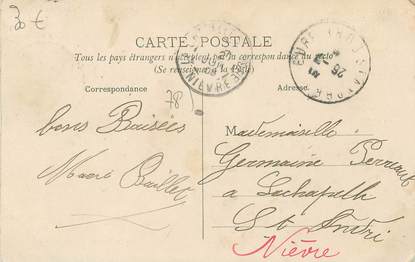 30 €
CARTE POSTALE
Tous les pays étrangers n'acceptent pas la correspondance au recto
(Se renseigner à la Poste)
Correspondance
Adresse
78
bons Baisers
Mademoiselle
Germaine
a Lachapelle
St André
Nièvre